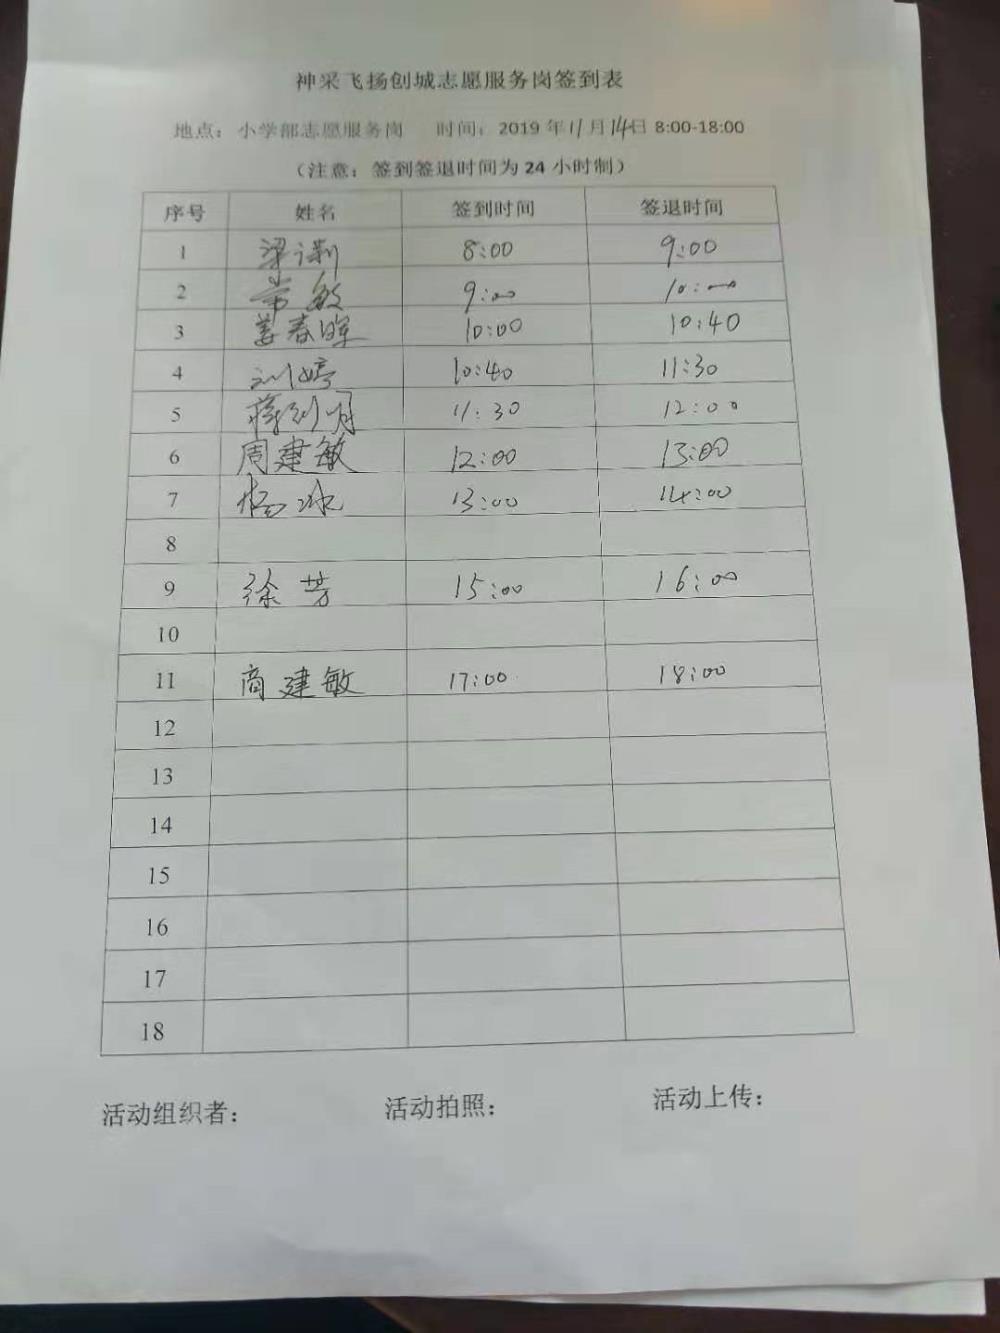 神采飞扬创城志愿服务岗签到表
地点：小学部志愿服务岗 时间：2019 年 11 月 14 日 8:00-18:00
（注意：签到签退时间为 24 小时制）
序号 姓名 签到时间 签退时间
1 梁 8:00 9:00
2 常敏 9:00 10:00
3 姜春晖 10:00 10:40
4 刘婷 10:40 11:30
5 蒋 11:30 12:00
6 周建敏 12:00 13:00
7 杨冰 13:00 14:00
8
9 徐芳 15:00 16:00
10
11 商建敏 17:00 18:00
12
13
14
15
16
17
18
活动组织者： 活动拍照： 活动上传：